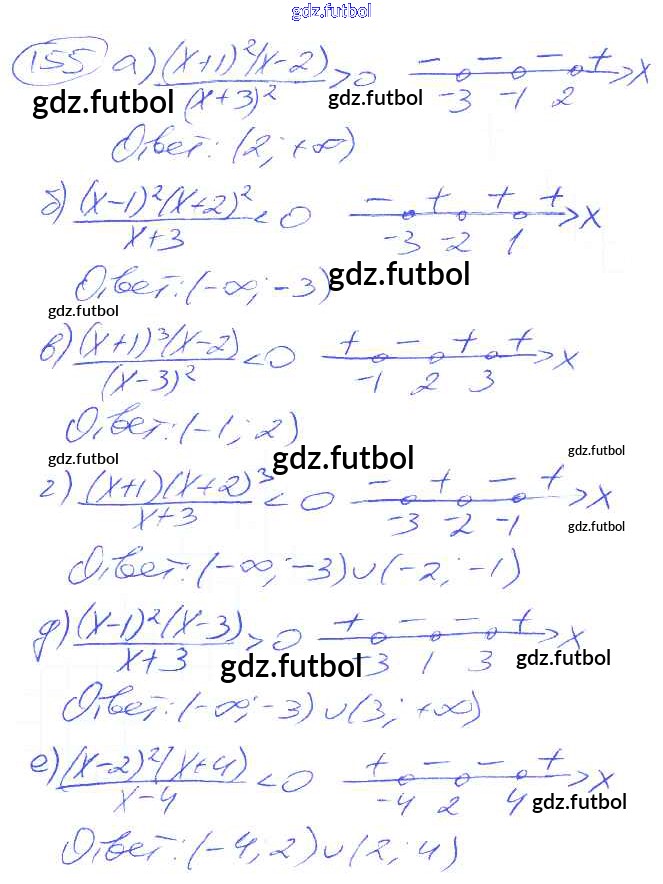 gdz.futbol
155 а) (x+1)²(x-2)/(x+3)² > 0 - - - + -3 -1 2 x
gdz.futbol gdz.futbol
Ответ: (2; +∞)
б) (x-1)²(x+2)²/x+3 < 0 - + + + -3 -2 1 x
Ответ: (-∞; -3)
gdz.futbol
gdz.futbol
в) (x+1)³(x-2)/(x-3)² < 0 + - + + -1 2 3 x
Ответ: (-1; 2)
gdz.futbol
gdz.futbol gdz.futbol
г) (x+1)(x+2)³/x+3 < 0 - + - + -3 -2 -1 x
gdz.futbol
Ответ: (-∞; -3)∪(-2; -1)
д) (x-1)²(x-3)/x+3 > 0 + - - + -3 1 3 x
gdz.futbol gdz.futbol
Ответ: (-∞; -3)∪(3; +∞)
е) (x-2)²(x+4)/x-4 < 0 + - - + -4 2 4 x
gdz.futbol
Ответ: (-4; 2)∪(2; 4)